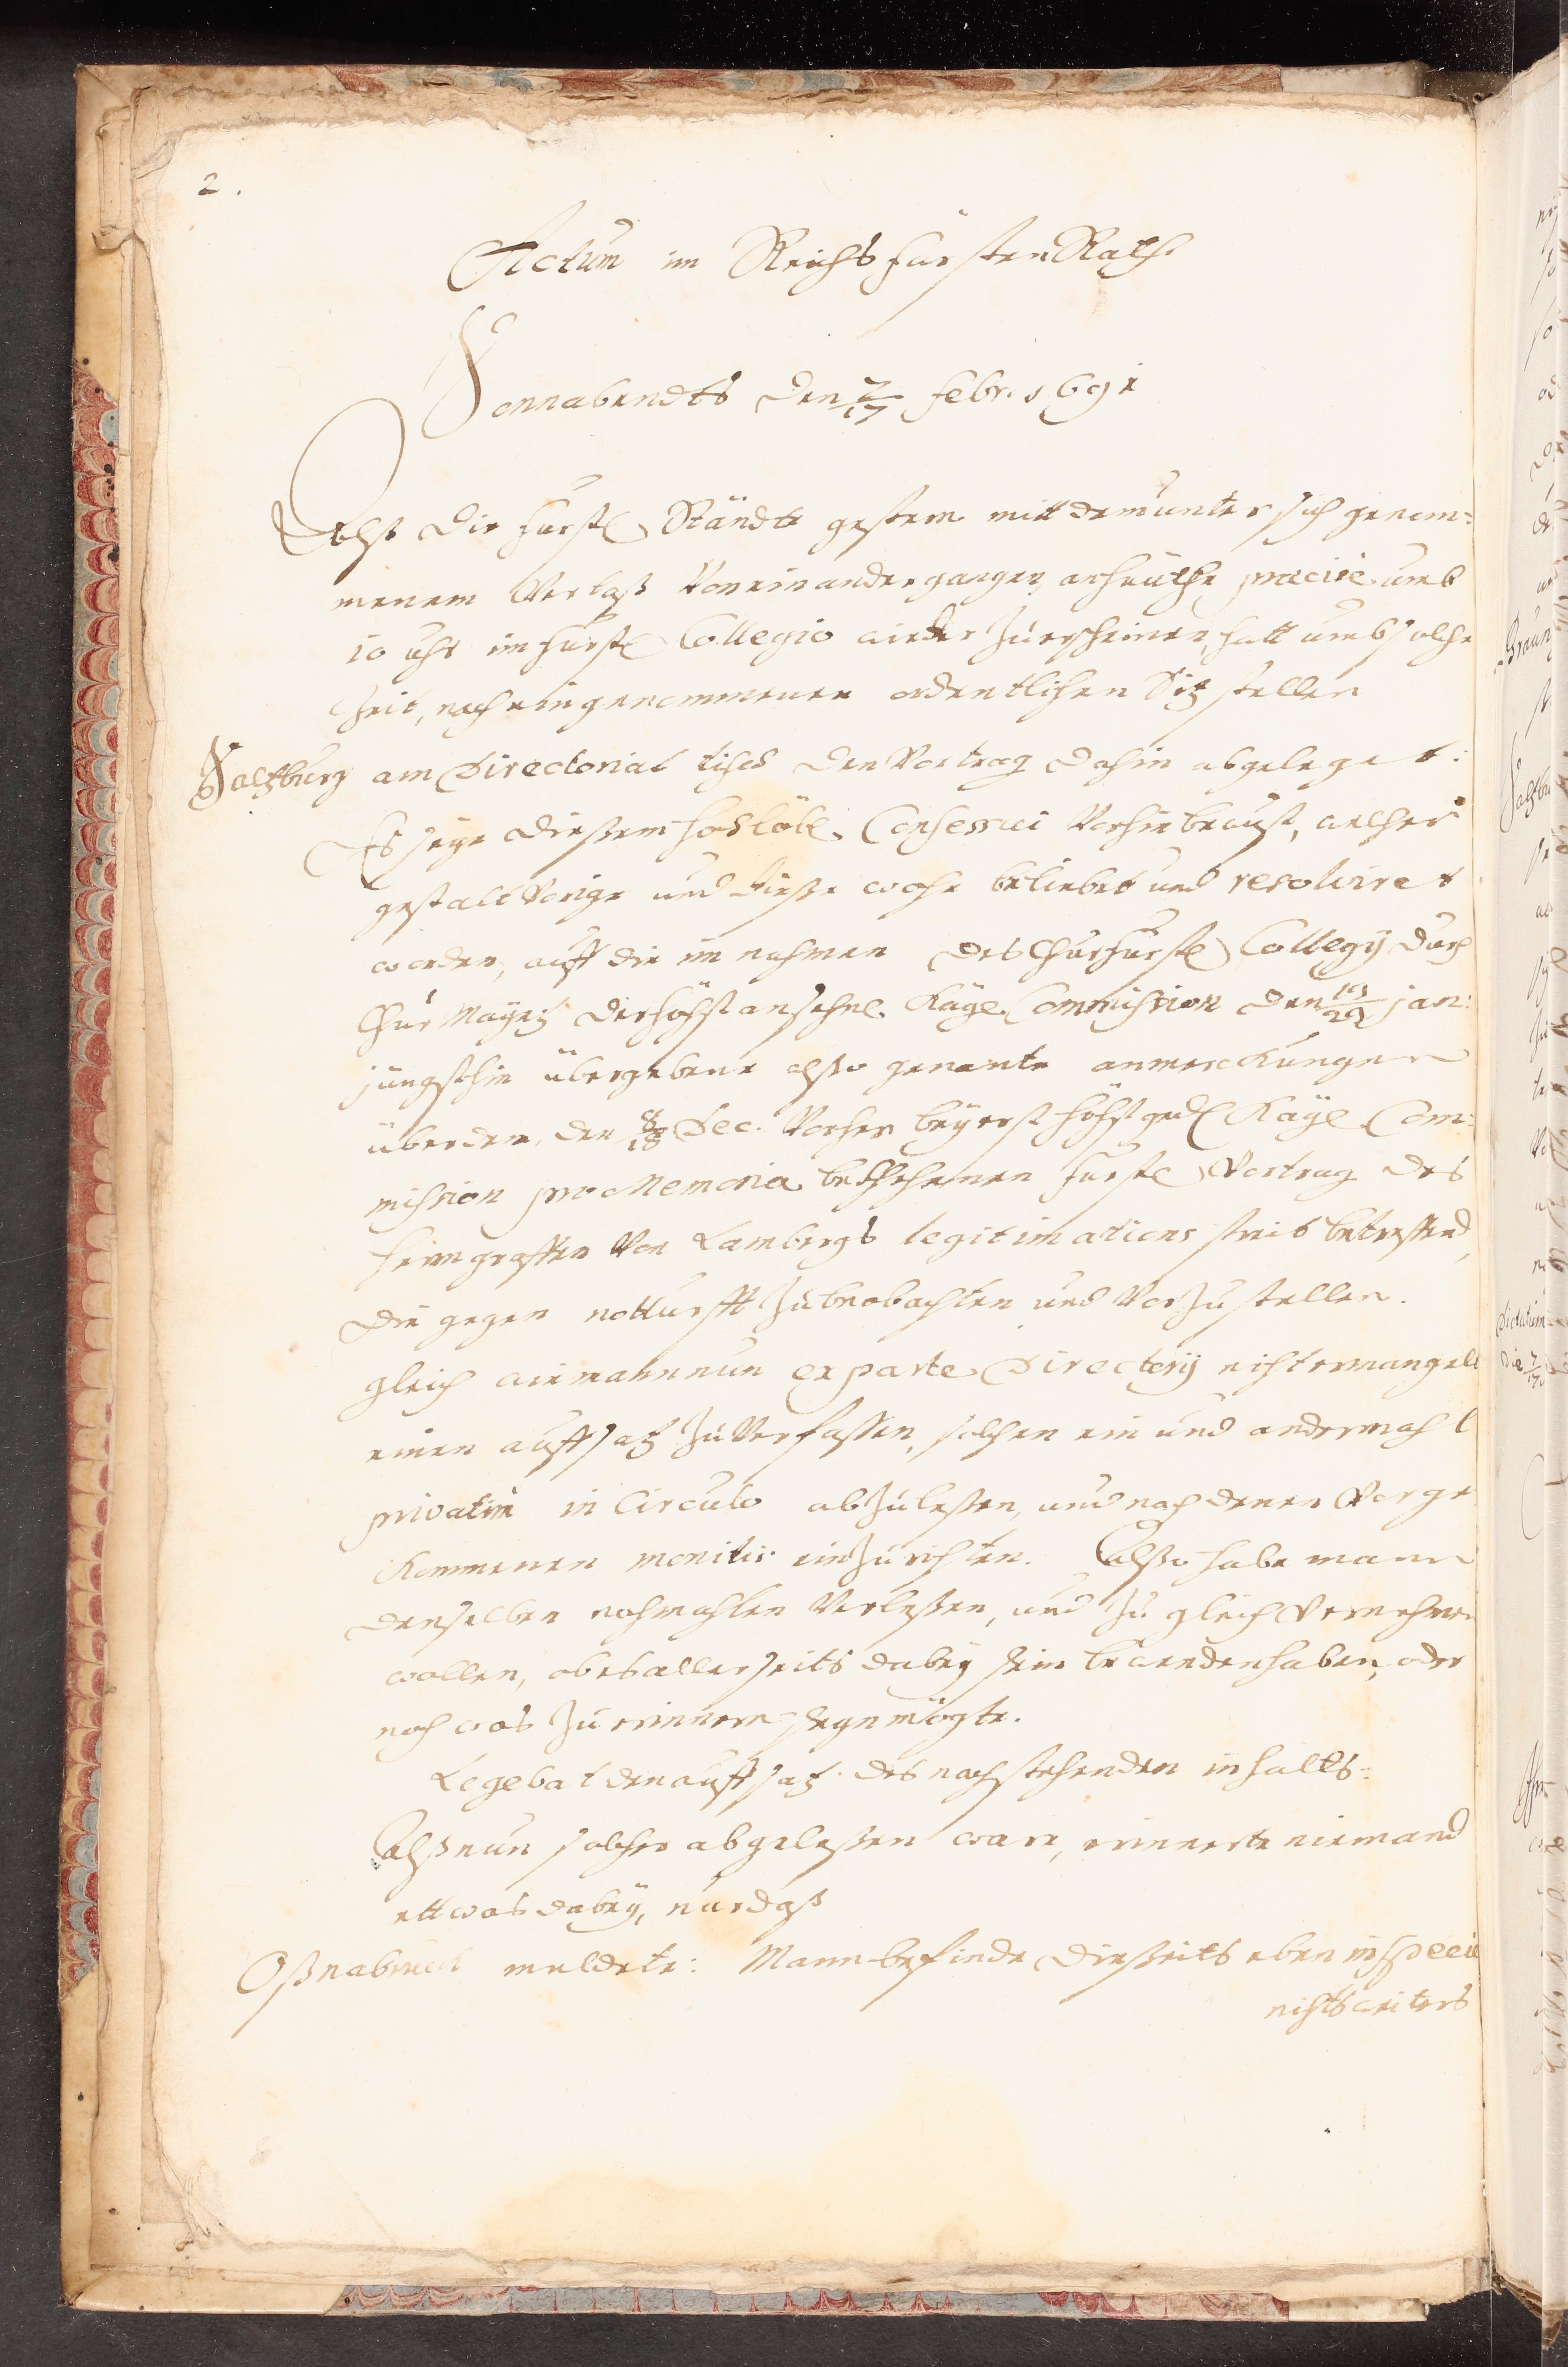 2.
Actum im Reichs Fürsten Rath
Sonnabendts den 7/17 Febr. 1691
Alß die Fürstl. Stände gestern mitt dem unter sich genom=
menem Verlaß Von einander gangen, anheuthe præcise umb
10 uhr im Fürstl. Collegio wieder zu erscheinen, hatt umb solche
Zeit, nach eingenommenen ordentlichen Sitz stellen
Saltzburg am Directorial tisch den Vortrag dahin abgeleget:
Es seye dießem hochlöbl. Consessui Vorhin bewust, welcher
gestalt Vorige und dieße woche beliebet und resolviret
worden, auff die im nahmen des Churfürstl. Collegij durch
Chur Mayntz der höchst ansehnl. Kayl. Commission den 19/29 jan:
jüngsthin übergebene alßo genante anmerckungen
über den, den 8/18 Dec. Vorher bey erst höchstged. Kayl. Com=
mission pro Memoria beschehenen Fürstl. Vortrag des
herrn graffen Von Lambergs legitimations streit betreffend,
die gegen notturfft zu beobachten und Vorzustellen.
gleich wie mann nun ex parte Directorij nicht ermangelt
einen auffsatz zu Verfassen, solchen ein und andermahl
privatim in Circulo abzuleßen, und nach denen Vorge
kommenen monitis einzurichten. Alßo habe mann
denselben nochmahlen Verleßen, und zu gleich Vernehmen
wollen, ob es allerseits dabey sein bewenden haben, oder
noch was zu erinnern seyn mögte.
Legebat den auffsatz des nachstehenden inhalts:
Alß nun solcher abgeleßen ware, erinnerte niemand
ettwas dabey, nur daß
Oßnabruck meldete: Mann befinde dießeits eben in specie
nichts weiters